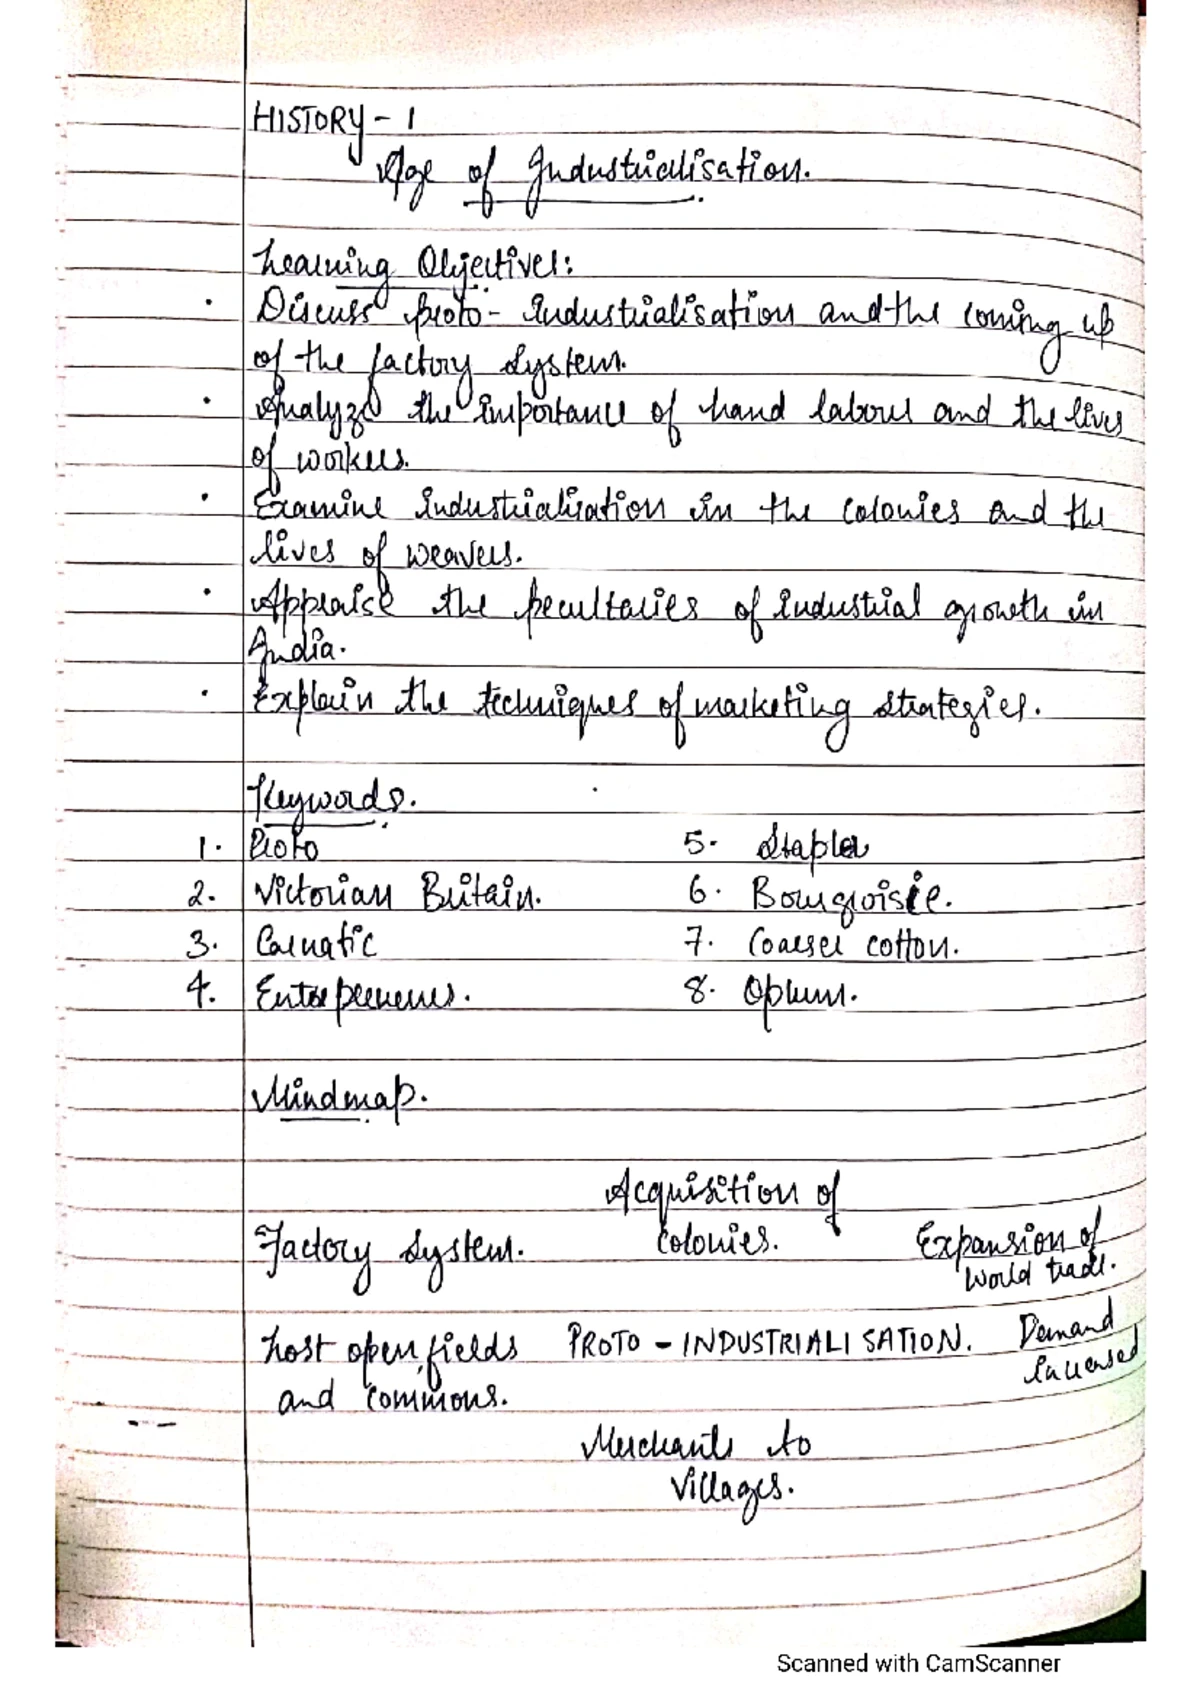 HISTORY - 1
Age of Industrialisation.
Learning Objectives:
• Discuss proto - industrialisation and the coming up
of the factory system.
• Analyze the importance of hand labour and the lives
of workers.
• Examine industrialisation in the colonies and the
lives of weavers.
• Appraise the pecultaries of industrial growth in
India.
• Explain the techniques of marketing strategies.
Keywords.
1. Proto 5. Stapler
2. Victorian Britain. 6. Bourgoisie.
3. Carnatic 7. Coarser cotton.
4. Entrepreneurs. 8. Opium.
Mindmap.
Acquisition of
Factory System. colonies. Expansion of
World trade.
Lost open fields PROTO - INDUSTRIALISATION. Demand
and commons. Increased
Merchants to
Villages.
Scanned with CamScanner